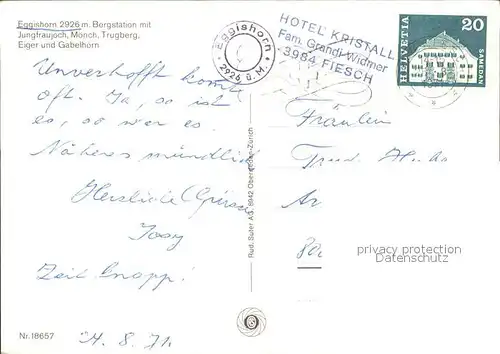 Eggishorn 2926 m. Bergstation mit
Jungfraujoch, Mönch, Trugberg,
Eiger und Gabelhorn
Eggishorn
2926 ü.M
HOTEL KRISTALL
Fam. Grandi-Widmer
3984 FIESCH
HELVETIA
20
SAMEDAN
Unverhofft kommt
oft. Ja, so ist
es, so war es.
Näheres mündlich
Herzliche Grüsse
Josy
Zeit knapp!
24.8.71.
Fräulein
Nr.18657
Rud. Suter A.G. 8942 Oberrieden-Zürich
privacy protection
Datenschutz